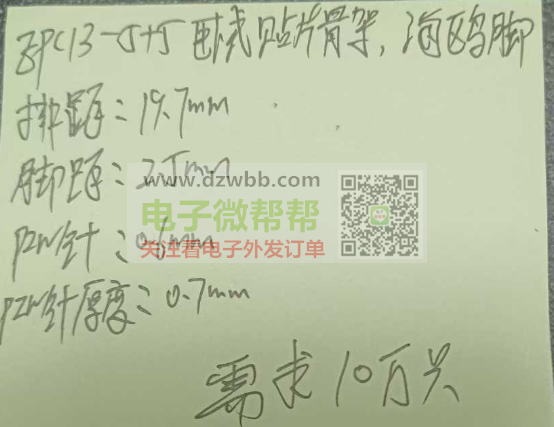 EPC13-5+5 卧式贴片骨架，海鸥脚
排距：19.7mm
脚距：2.5mm
www.dzwbb.com
电子微帮帮
PIN针：0.6mm
关注看电子外发订单
PIN针厚度：0.7mm
需求10万只